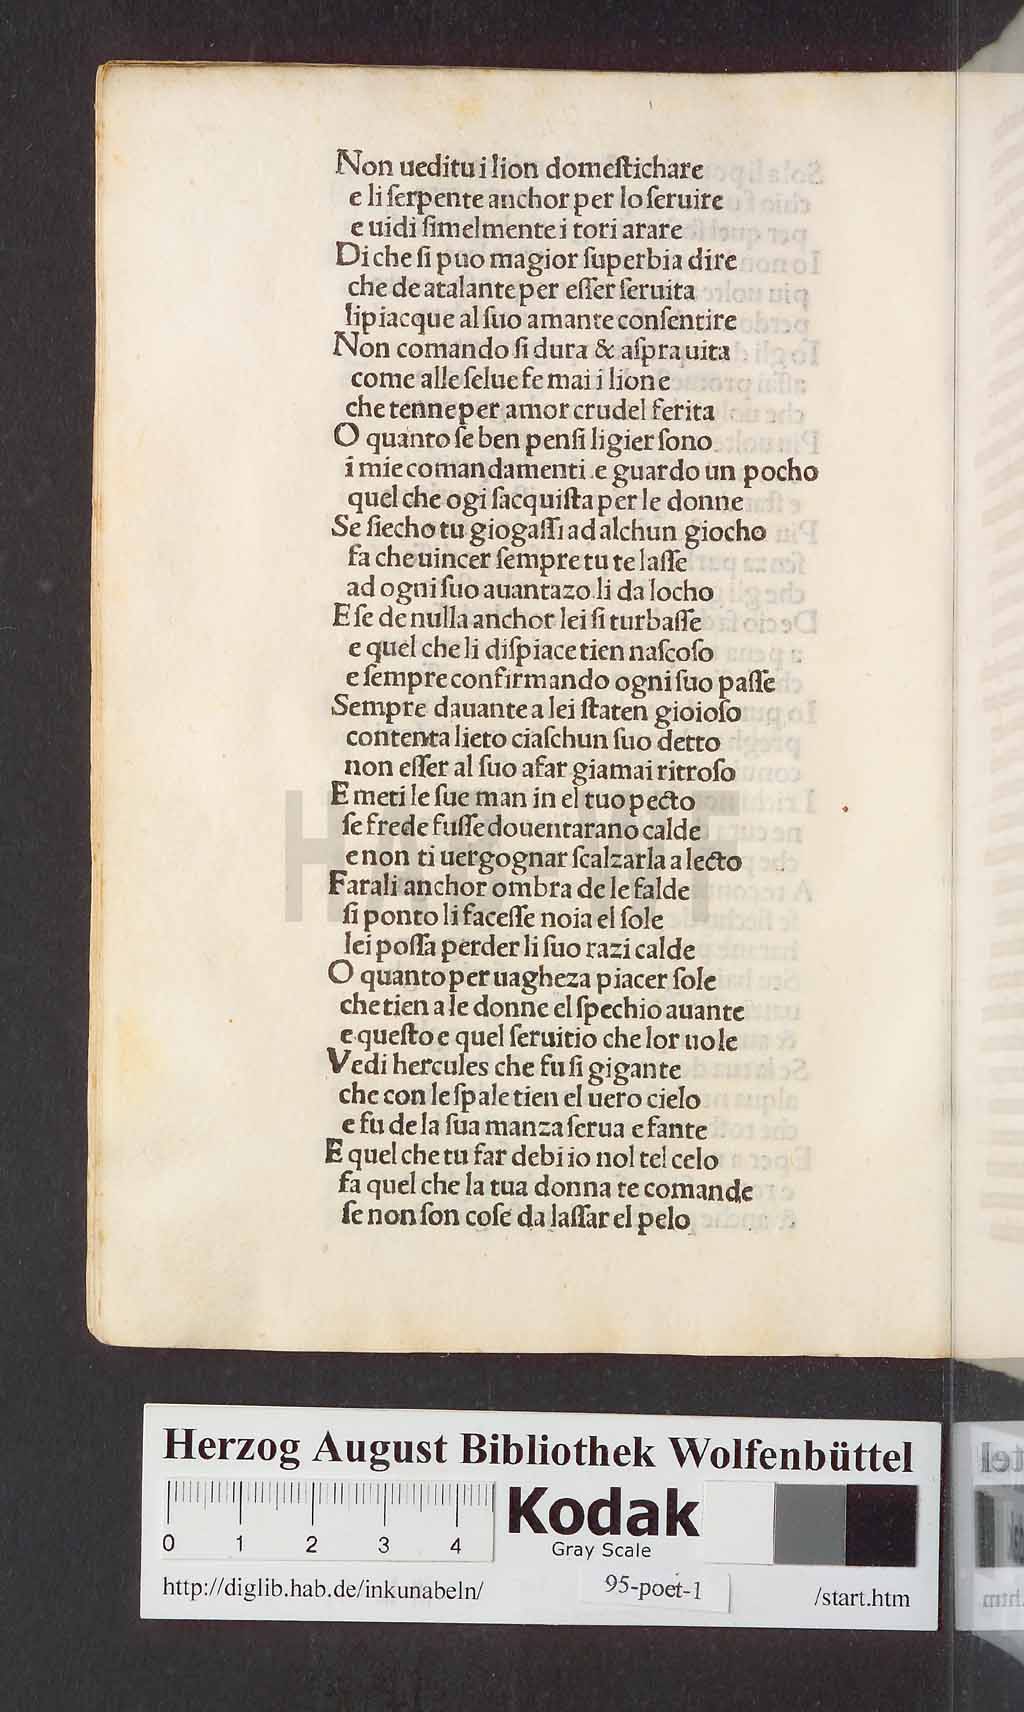 Non ueditu i lion domeſtichare
e li ſerpente anchor per lo ſeruire
e uidi ſimelmente i tori arare
Di che ſi puo magior ſuperbia dire
che de atalante per eſſer ſeruita
li piacque al ſuo amante conſentire
Non comando ſi dura & aſpra uita
come alle ſelue fe mai i lione
che tenne per amor crudel ferita
O quanto ſe ben penſi ligier ſono
i mie comandamenti e guardo un pocho
quel che ogi ſacquiſta per le donne
Se ſiecho tu giogaſſi ad alchun giocho
fa che uincer ſempre tu te laſſe
ad ogni ſuo auantazo li da locho
E ſe de nulla anchor lei ſi turbaſſe
e quel che li diſpiace tien naſcoſo
e ſempre confirmando ogni ſuo paſſe
Sempre dauante a lei ſtaten gioioſo
contenta lieto ciaſchun ſuo detto
non eſſer al ſuo afar giamai ritroſo
E meti le ſue man in el tuo pecto
ſe frede fuſſe douentarano calde
e non ti uergognar ſcalzarla a lecto
Farali anchor ombra de le falde
ſi ponto li faceſſe noia el ſole
lei poſſa perder li ſuo razi calde
O quanto per uagheza piacer ſole
che tien a le donne el ſpechio auante
e queſto e quel ſeruitio che lor uole
Vedi hercules che fu ſi gigante
che con le ſpale tien el uero cielo
e fu de la ſua manza ſerua e fante
E quel che tu far debi io nol tel celo
fa quel che la tua donna te comande
ſe non ſon coſe da laſſar el pelo
HAB - WF
Herzog August Bibliothek Wolfenbüttel
0 1 2 3 4
Kodak
Gray Scale
http://diglib.hab.de/inkunabeln/ 95-poet-1 /start.htm